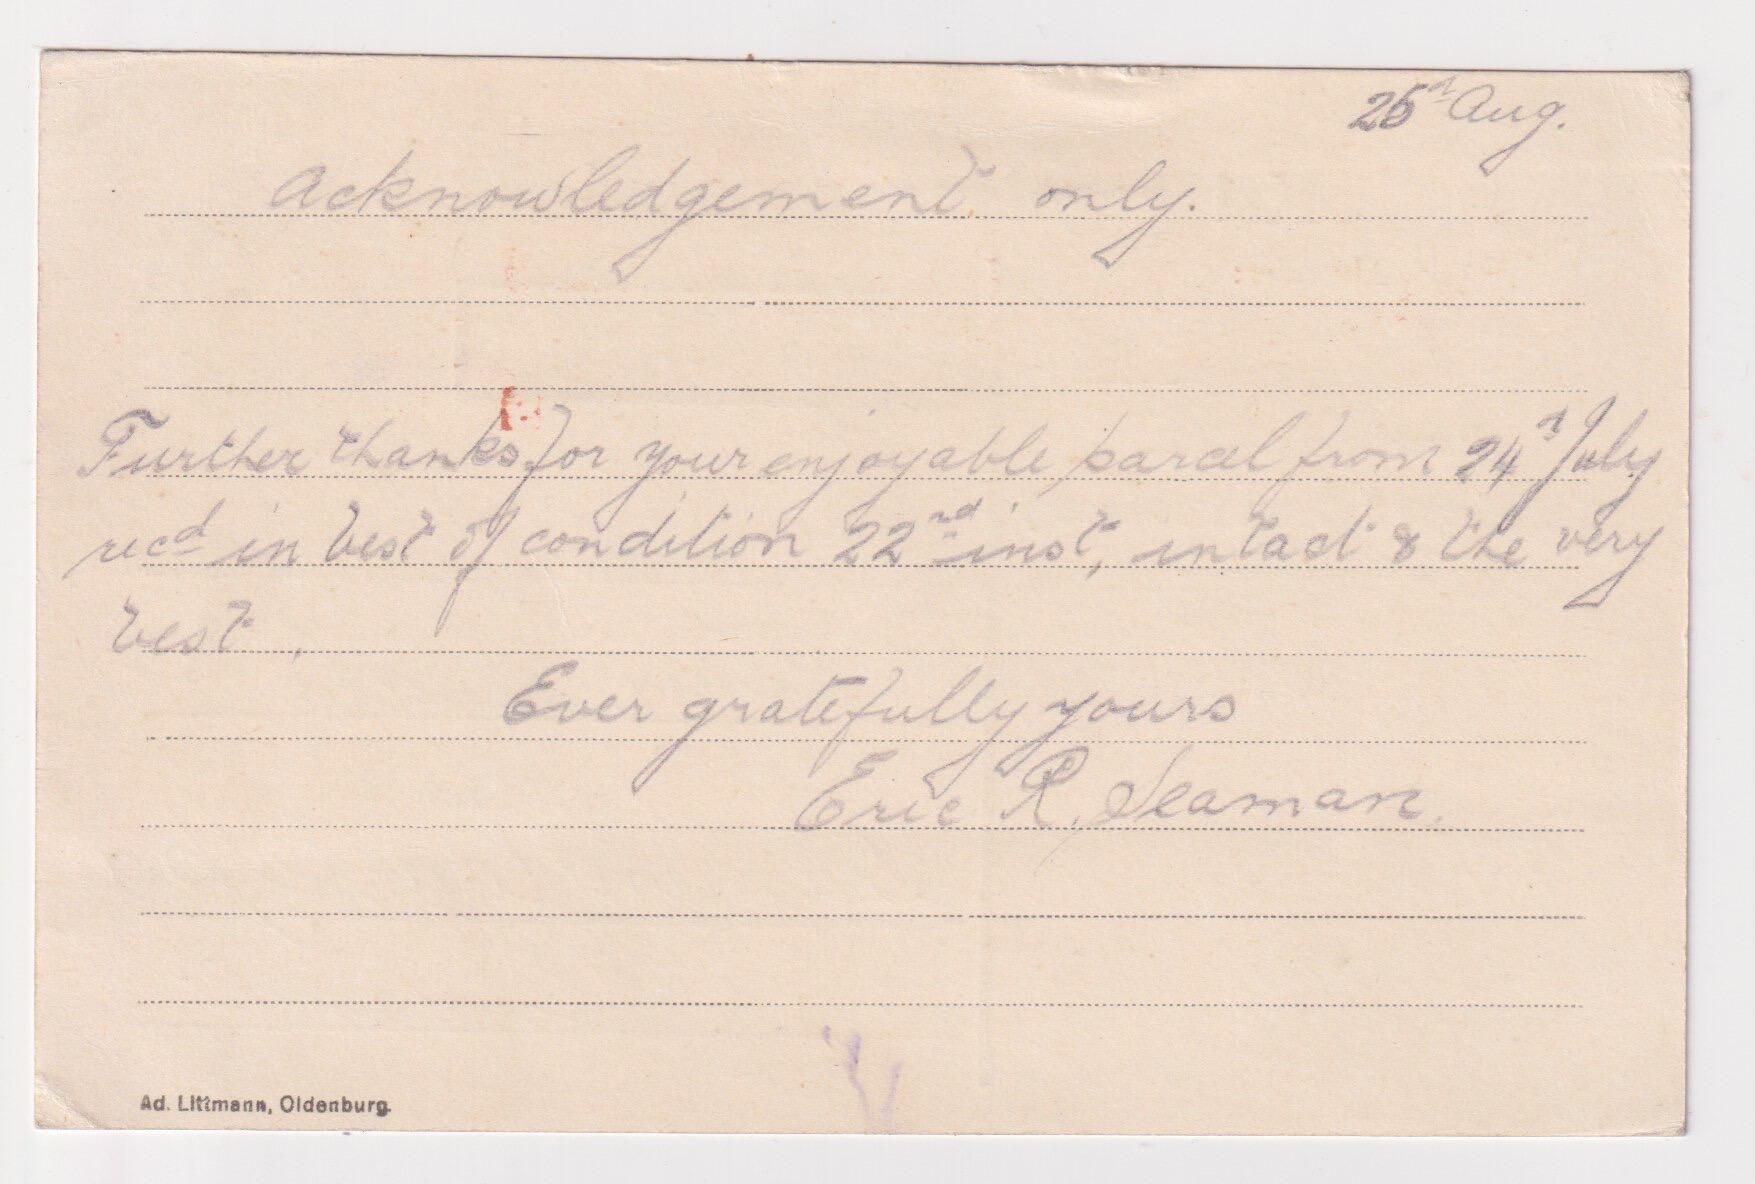 25th Aug.
Acknowledgement only.
Further thanks for your enjoyable parcel from 24th July
recd in best of condition 22nd inst, intact & the very
best.
Ever gratefully yours
Eric R. Seaman.
Ad. Littmann, Oldenburg.